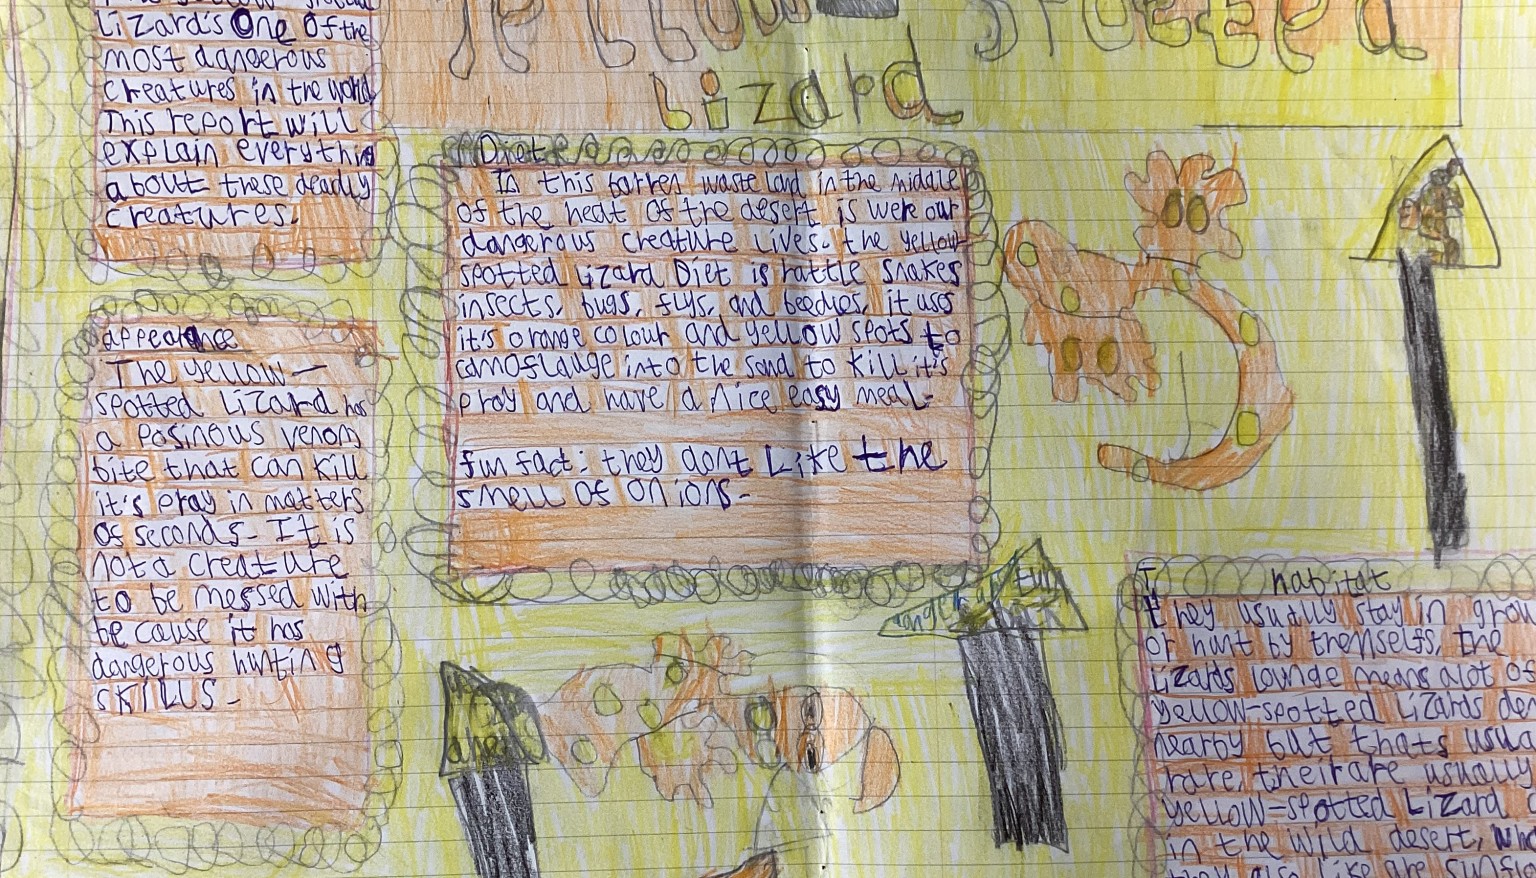 Yellow Spotted
Lizard
Lizards One of the
most dangerous
creatures in the world
This report will
explain everything
about these deadly
creatures.
appearance
The yellow-
spotted Lizard has
a posinous venom
bite that can kill
it's pray in matters
of seconds. It is
not a creature
to be messed with
because it has
dangerous hunting
SKILLS.
Diet
In this barren waste land in the middle
of the heat of the desert is were our
dangerous creature lives. the yellow-
spotted Lizard Diet is rattle snakes
insects, bugs, flys, and beedles, it uses
it's orange colour and yellow spots to
camoflauge into the sand to kill it's
pray and have a nice easy meal.
fun fact: they dont Like the
smell of onions.
habitat
They usually stay in
or hunt by themselfs, the
Lizards lounge means alot of
yellow-spotted Lizards
nearby but thats
rare, their are usually
yellow-spotted Lizard
in the wild desert,
they also like are